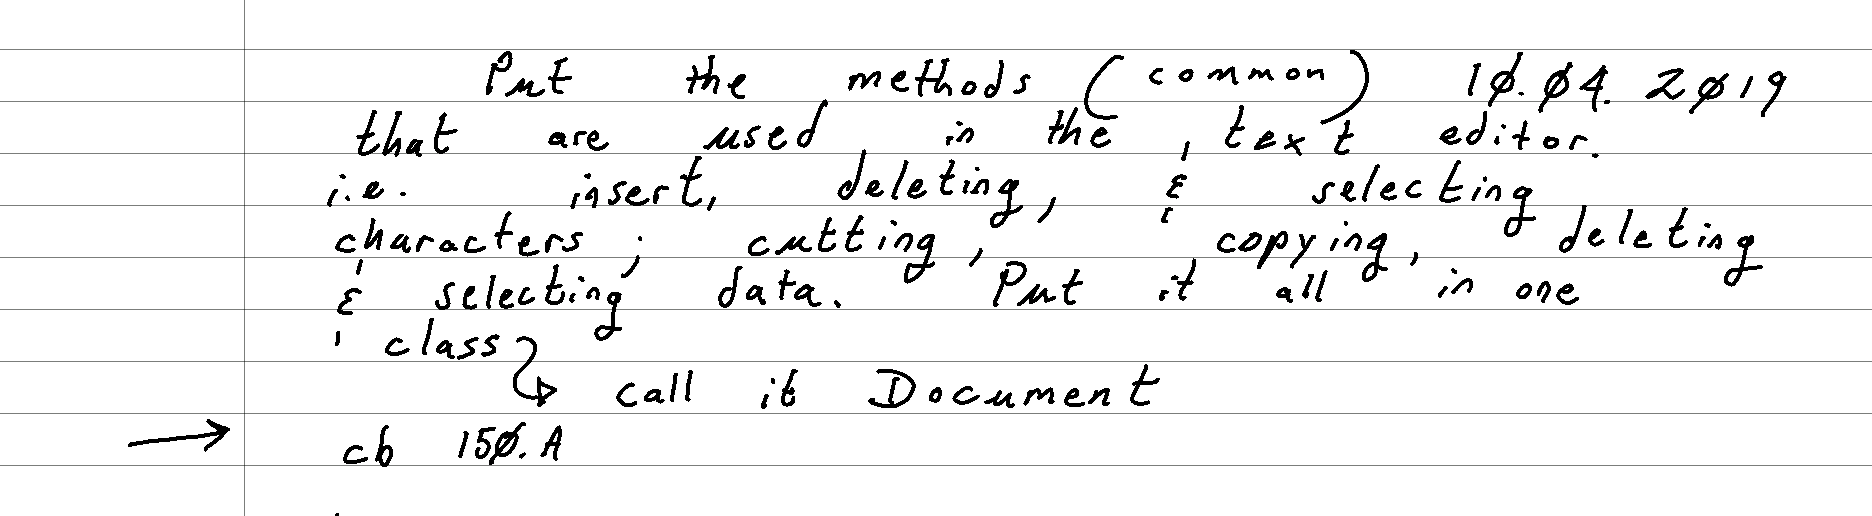 Put the methods (common) 10.04.2019
that are used in the text editor.
i.e. insert, deleting, & selecting
characters; cutting, copying, deleting
& selecting data. Put it all in one
class
call it Document
→ cb 150.A